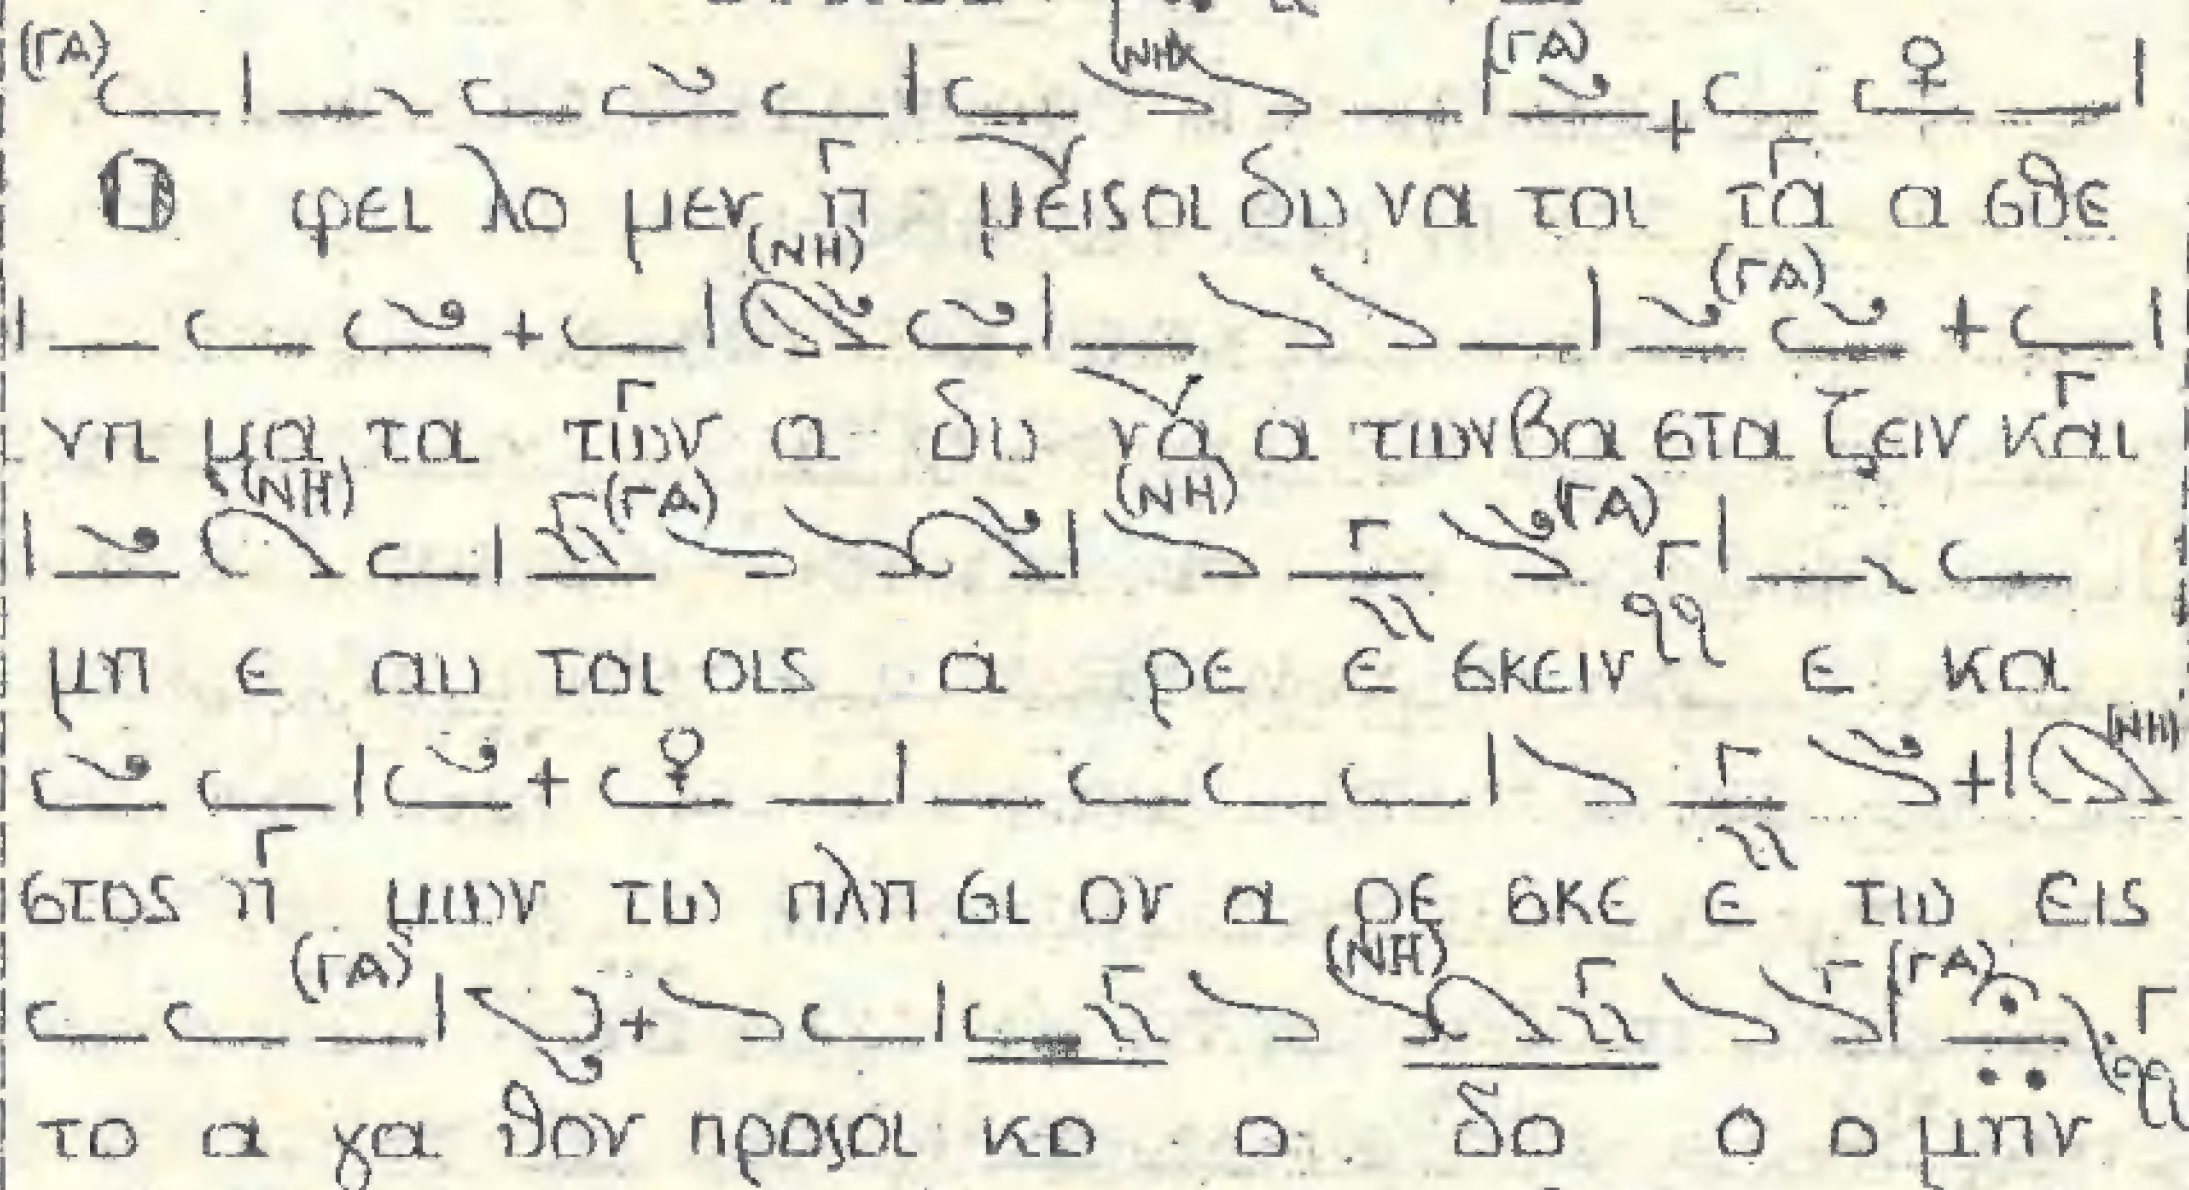 (ΓΑ) (ΝΗ) (ΓΑ)
Ο φει λο μεν η μεις οι δυ να τοι τα α σθε
(ΝΗ) (ΓΑ)
νη μα τα των α δυ να α των βα στα ζειν και
(ΝΗ) (ΓΑ) (ΝΗ) (ΓΑ)
μη ε αυ τοι οις α ρε ε σκειν ε κα
(ΝΗ)
στος η μων τω πλη σι ον α ρε σκε ε τω εις
(ΓΑ) (ΝΗ) (ΓΑ)
το α γα θον προς οι κο ο δο ο ο μην